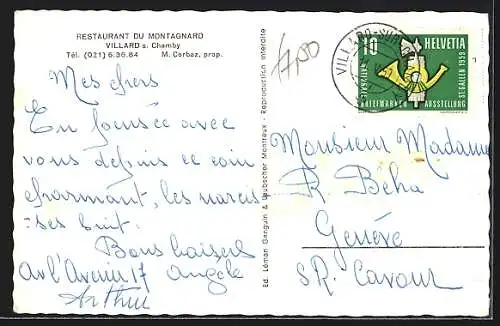 RESTAURANT DU MONTAGNARD
VILLARD s. Chamby
Tél. (021) 6.36.84 M. Cerbaz, prop.
Mes chers
En pensée avec
vous depuis ce coin
charmant, les narcis
-ses
Bons baisers
Angèle
Arthur
Ed. Léman Ganguin & Laubscher Montreux - Reproduction interdite
VILLARD-SUR
10 HELVETIA
NATIONALE
BRIEFMARKEN AUSSTELLUNG
ST. GALLEN 1959
Monsieur Madame
R. Beha
Genève
5 R. Cavour